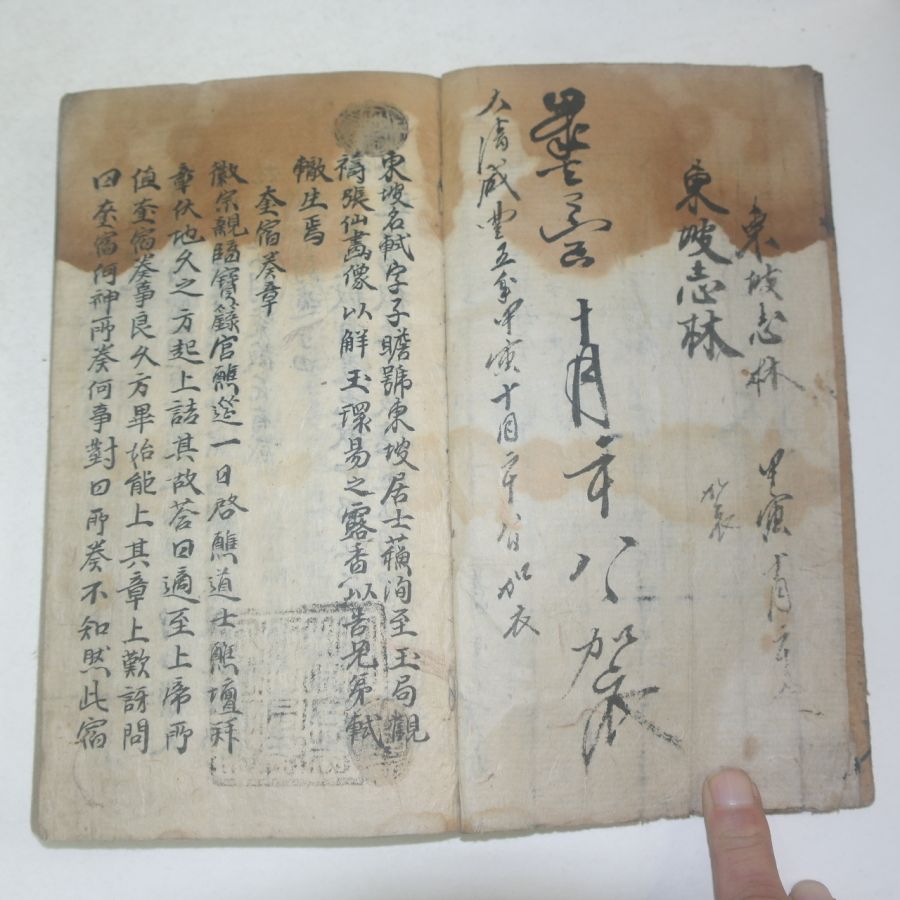 東坡志林
甲寅十月
東坡志林
加衣
十月二十八加衣
大淸咸豊五年甲寅十月二十八日加衣
東坡名軾字子瞻號東坡居士蘓洵至玉局觀
禱張仙畵像以鮮玉環易之露香以告兄弟軾
轍生焉
奎宿奏章
徽宗親臨寶籙宮醮筵一日啓醮道士醮壇拜
章伏地久之方起上詰其故答曰適至上帝所
值奎宿奏事良久方畢始能上其章上歎訝問
曰奎宿何神所奏何事對曰所奏不知然此宿